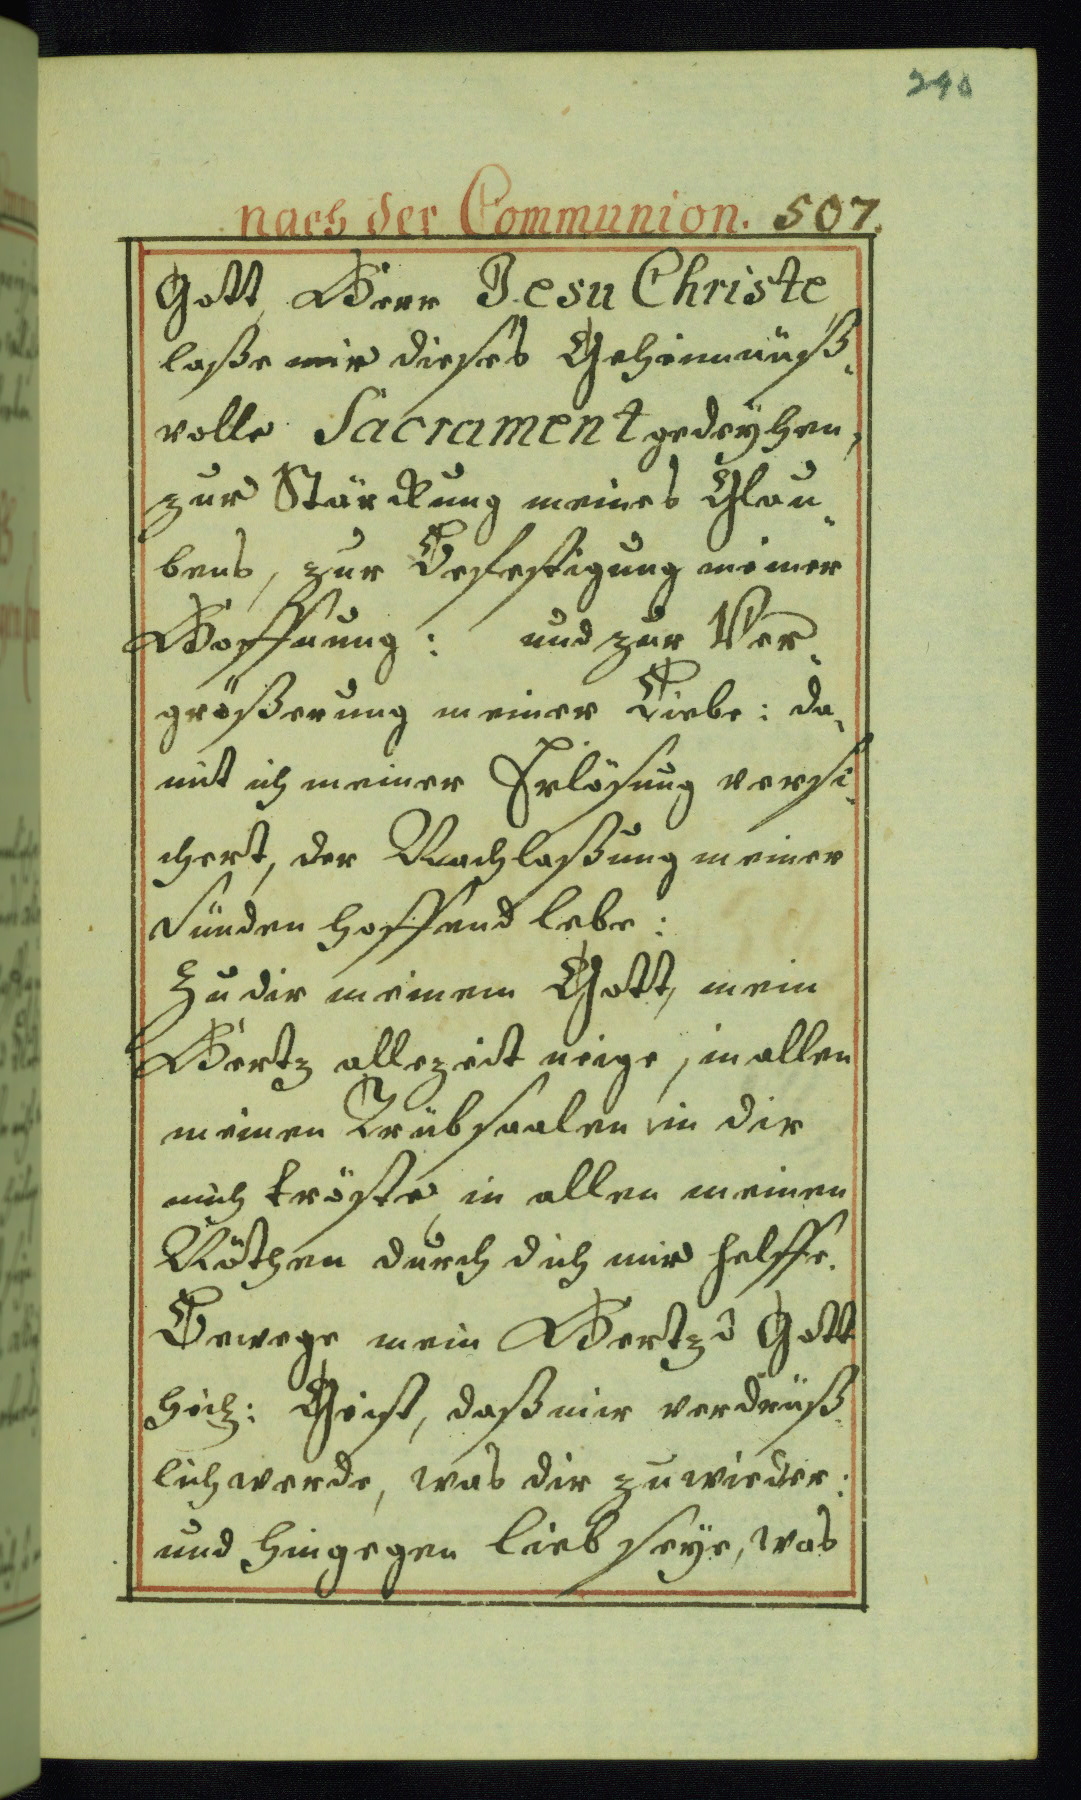 240
nach der Communion. 507.
Gott, Herr Jesu Christe
laße mir dieses Geheimnüß-
volle Sacrament gedeÿhen,
zur Stärckung meines Glau-
bens, zur Befestigung meiner
Hoffnung: und zur Ver-
größerung meiner Liebe: da-
mit ich meiner Erlösung versi-
chert, der Nachlaßung meiner
Sünden hoffend lebe:
Zu dir meinem Gott, mein
Hertz allezeit neige, in allen
meinen Trübsaalen in dir
mich tröste, in allen meinen
Nöthen durch dich mir helffe.
Bewege mein Hertz ô Gott
heil: Geist, daß mir verdrüß-
lich werde, was dir zuwieder:
und hingegen lieb seÿe, was